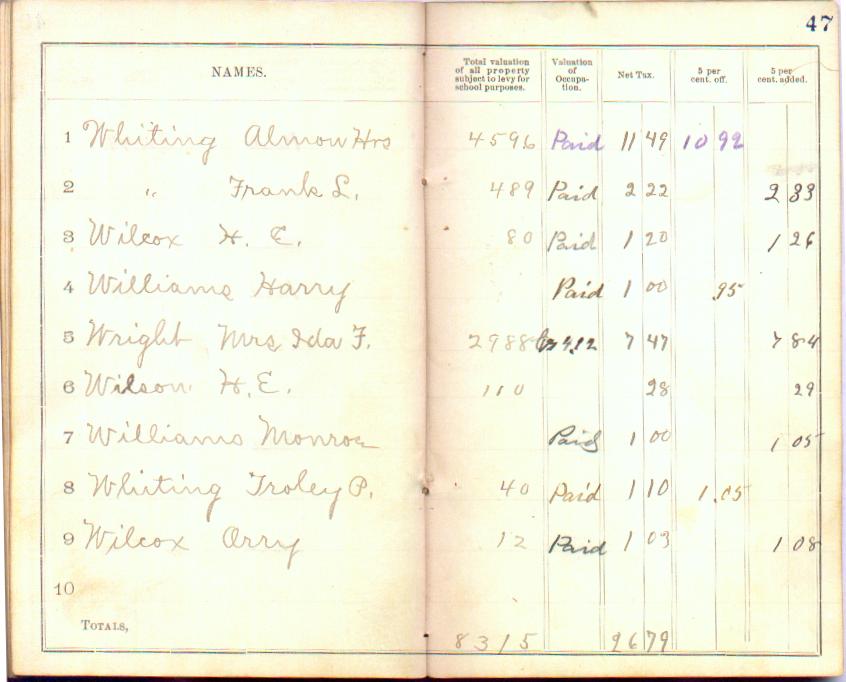 47
NAMES. Total valuation of all property subject to levy for school purposes. Valuation of Occupa- tion. Net Tax. 5 per cent. off. 5 per cent. added.
1 Whiting Almon Hrs 4596 Paid 11 49 10 92
2 " Frank L. 489 Paid 2 22 2 33
3 Wilcox H. E. 80 Paid 1 20 1 26
4 Williams Harry Paid 1 00 .95
5 Wright Mrs Ida F. 2988 7 47 7 84
6 Wilson H. E. 110 28 29
7 Williams Monroe Paid 1 00 1 05
8 Whiting Troley P. 40 Paid 1 10 1.05
9 Wilcox Orry 12 Paid 1 03 1 08
10
TOTALS, 8315 2679